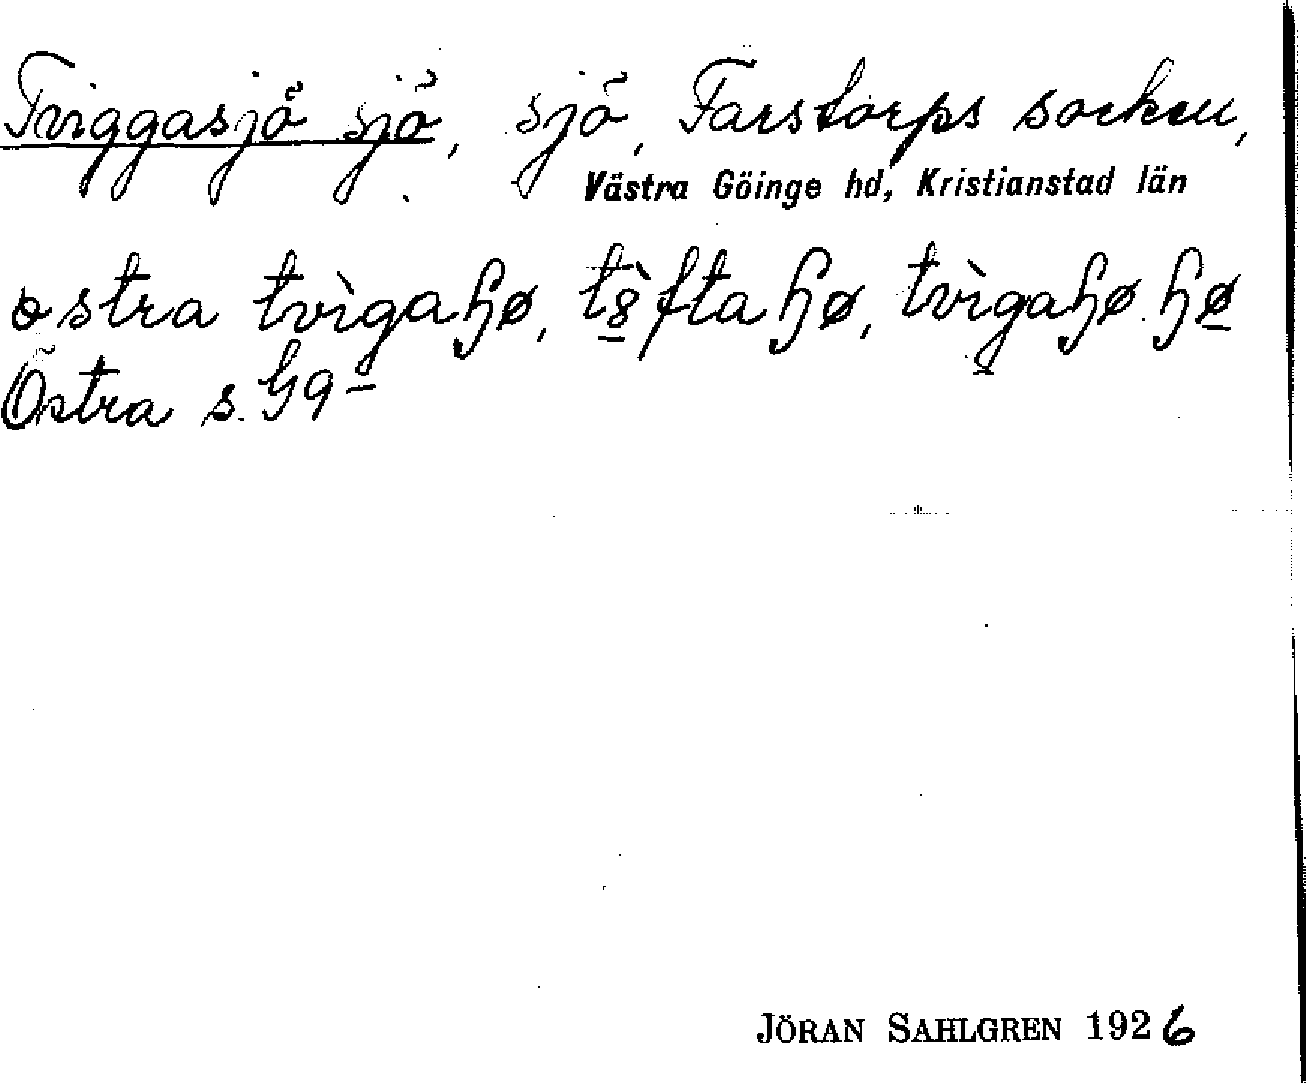 Tviggasjö sjö, sjö, Farstorps socken,
Västra Göinge hd, Kristianstad län
ostra tvìgaɧø, tȣ̀ftaɧø, tvìgaɧø.ɧø
Östra s.
JÖRAN SAHLGREN 1926